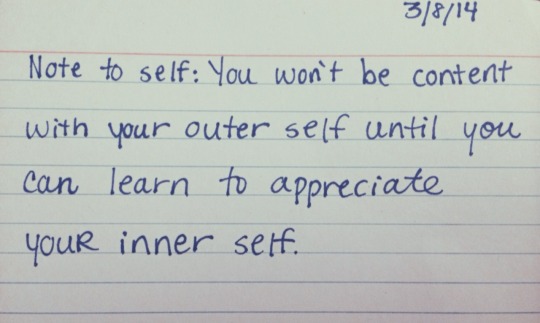 3/8/14
Note to self: You won't be content
with your outer self until you
can learn to appreciate
your inner self.